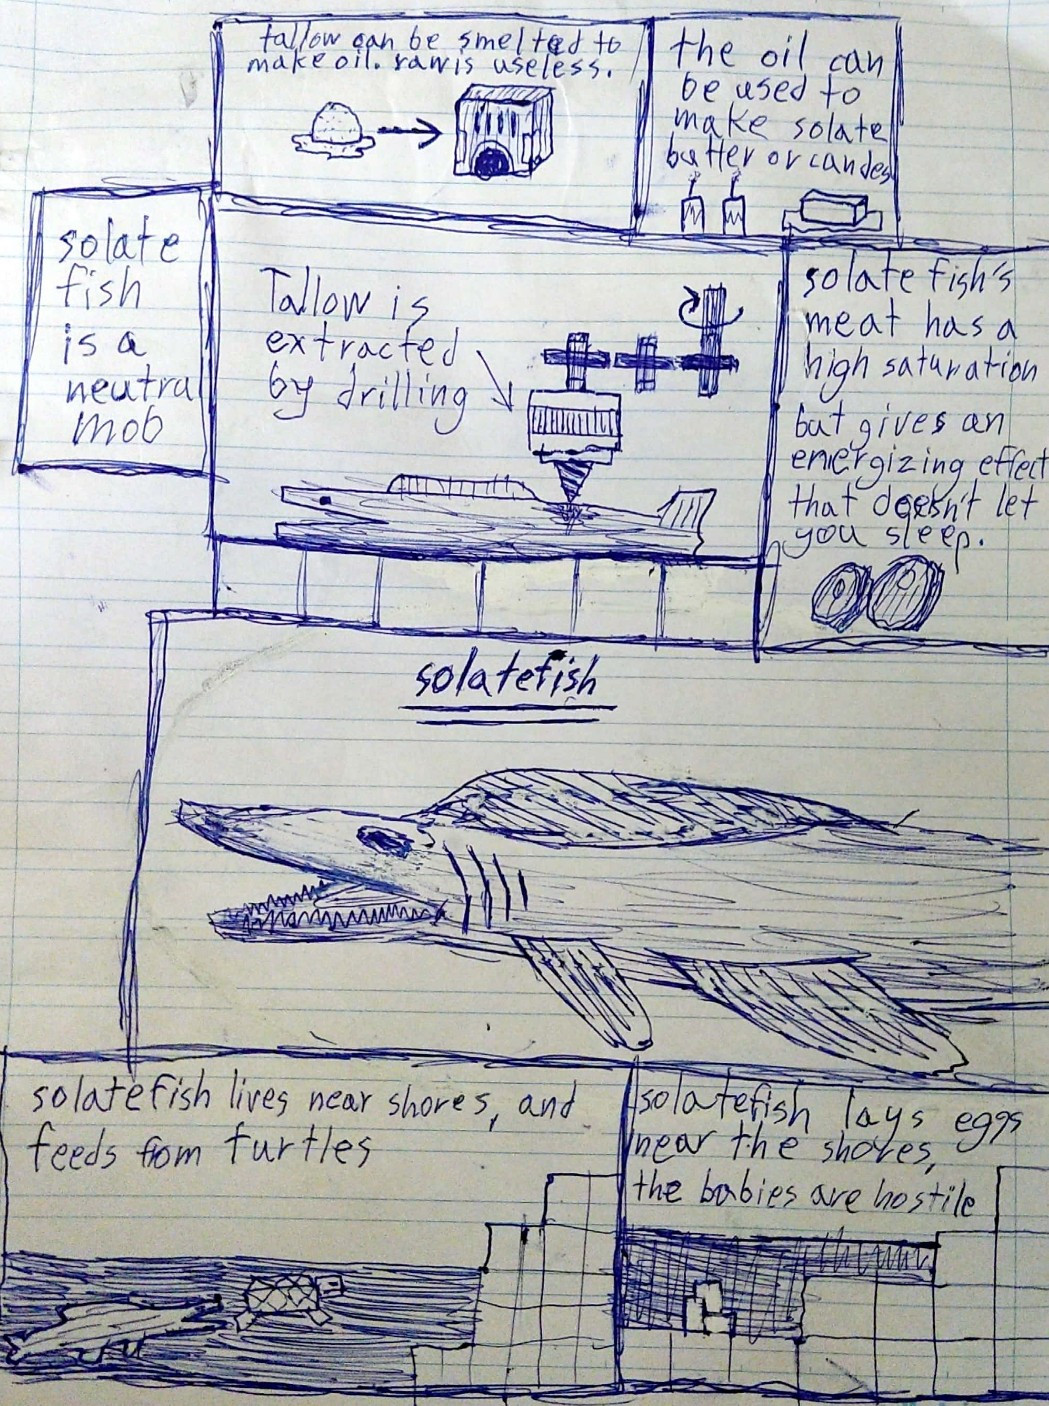 tallow can be smelted to
make oil. raw is useless.
the oil can
be used to
make solate
butter or candes
solate
fish
is a
neutral
mob
Tallow is
extracted
by drilling
solate fish's
meat has a
high saturation
but gives an
energizing effect
that doesn't let
you sleep.
solatefish
solatefish lives near shores, and
feeds from turtles
solatefish lays eggs
near the shores,
the babies are hostile